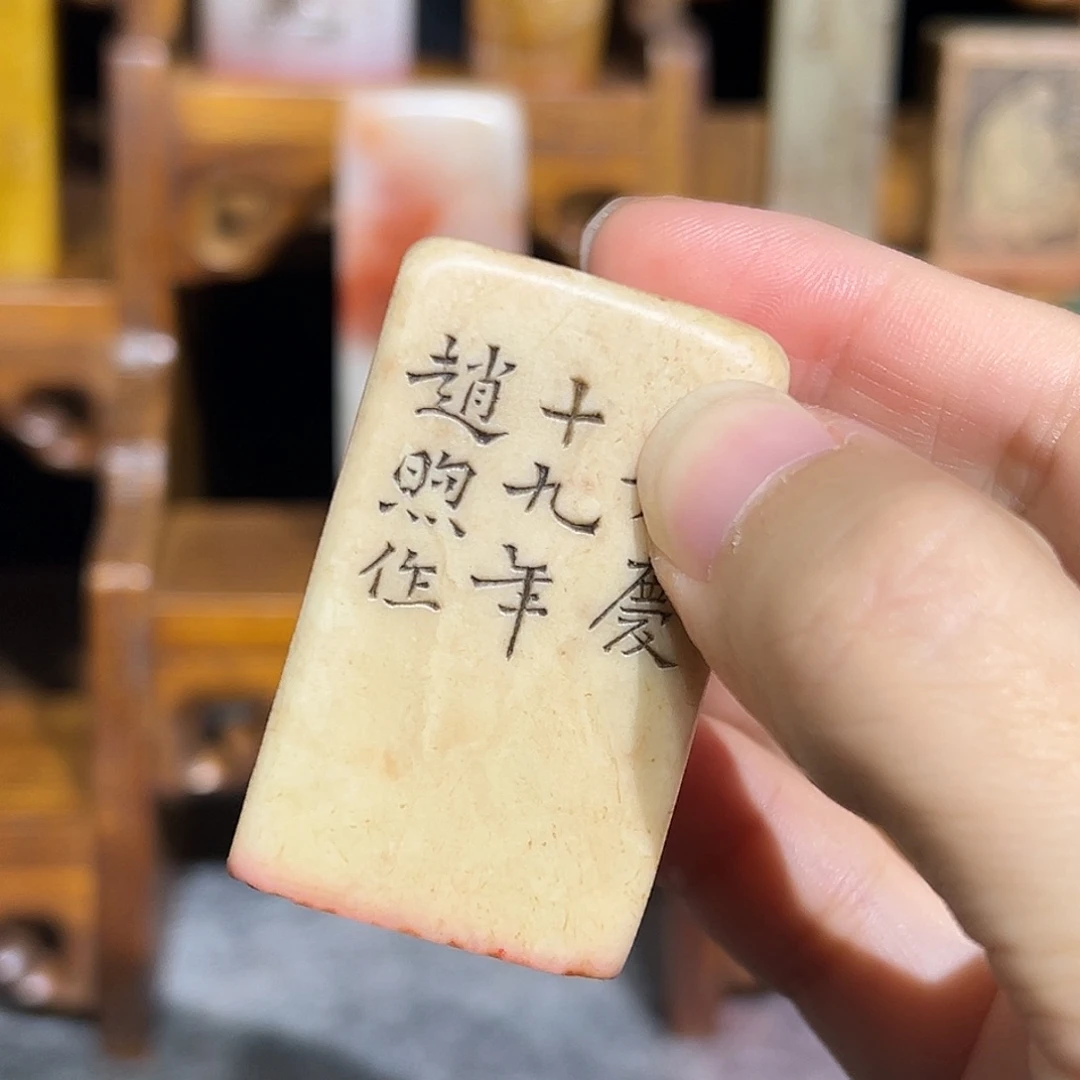 慶
十九年
趙煦作